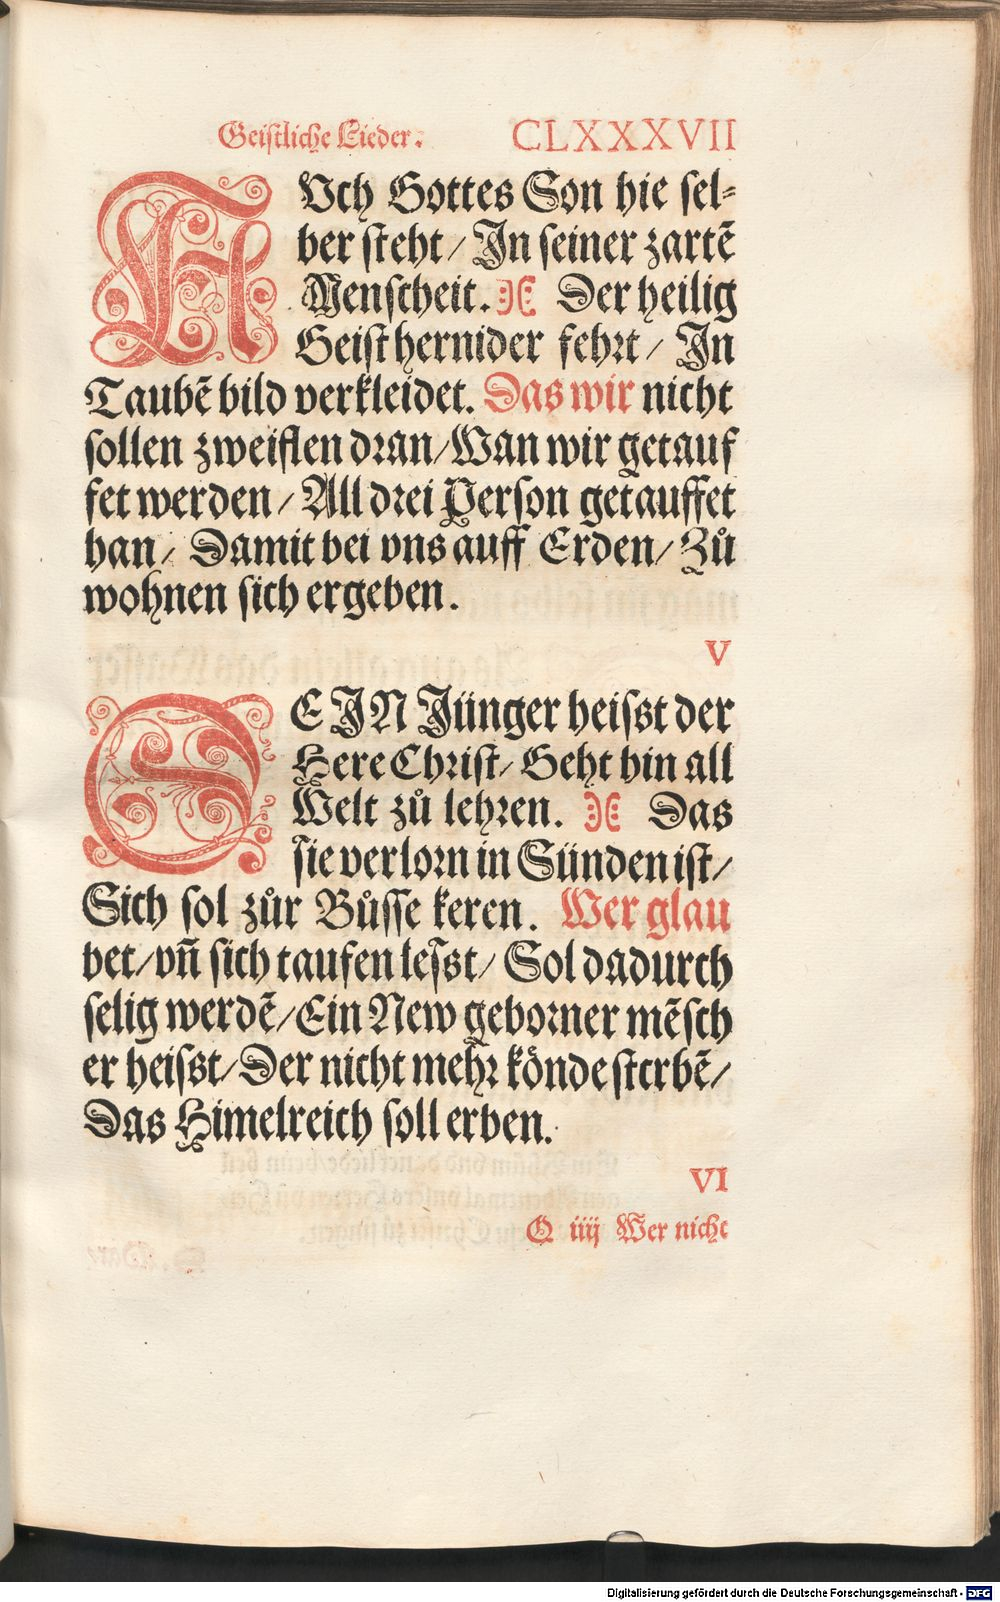 Geistliche Lieder. CLXXXVII
AUch Gottes Son hie sel-
ber steht / In seiner zartẽ
Menscheit. Der heilig
Geist hernider fehrt / In
Taubẽ bild verkleidet. Das wir nicht
sollen zweiflen dran / Wan wir getauf
fet werden / All drei Person getauffet
han / Damit bei vns auff Erden / Zů
wohnen sich ergeben.
V
SEIN Jünger heisst der
Here Christ / Geht hin all
Welt zů lehren. Das
sie verlorn in Sünden ist /
Sich sol zůr Bůsse keren. Wer glau
bet / vñ sich taufen lesst / Sol dadurch
selig werdẽ / Ein New geborner mẽsch
er heisst / Der nicht mehr könde sterbẽ /
Das Himelreich soll erben.
VI
Q iiij Wer nicht
Digitalisierung gefördert durch die Deutsche Forschungsgemeinschaft - DFG